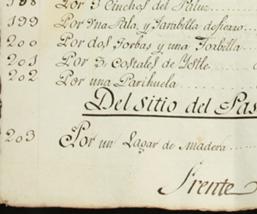 198 Por 3 Cinchos del
199 Por Una Pala, y Tarabilla de fierro
200 Por dos Forbas y una Forbilla
201 Por 3 Costales de Ystle
202 Por una Parihuela
Del Sitio del Pas
203 Por un Lagar de Madera
Frente